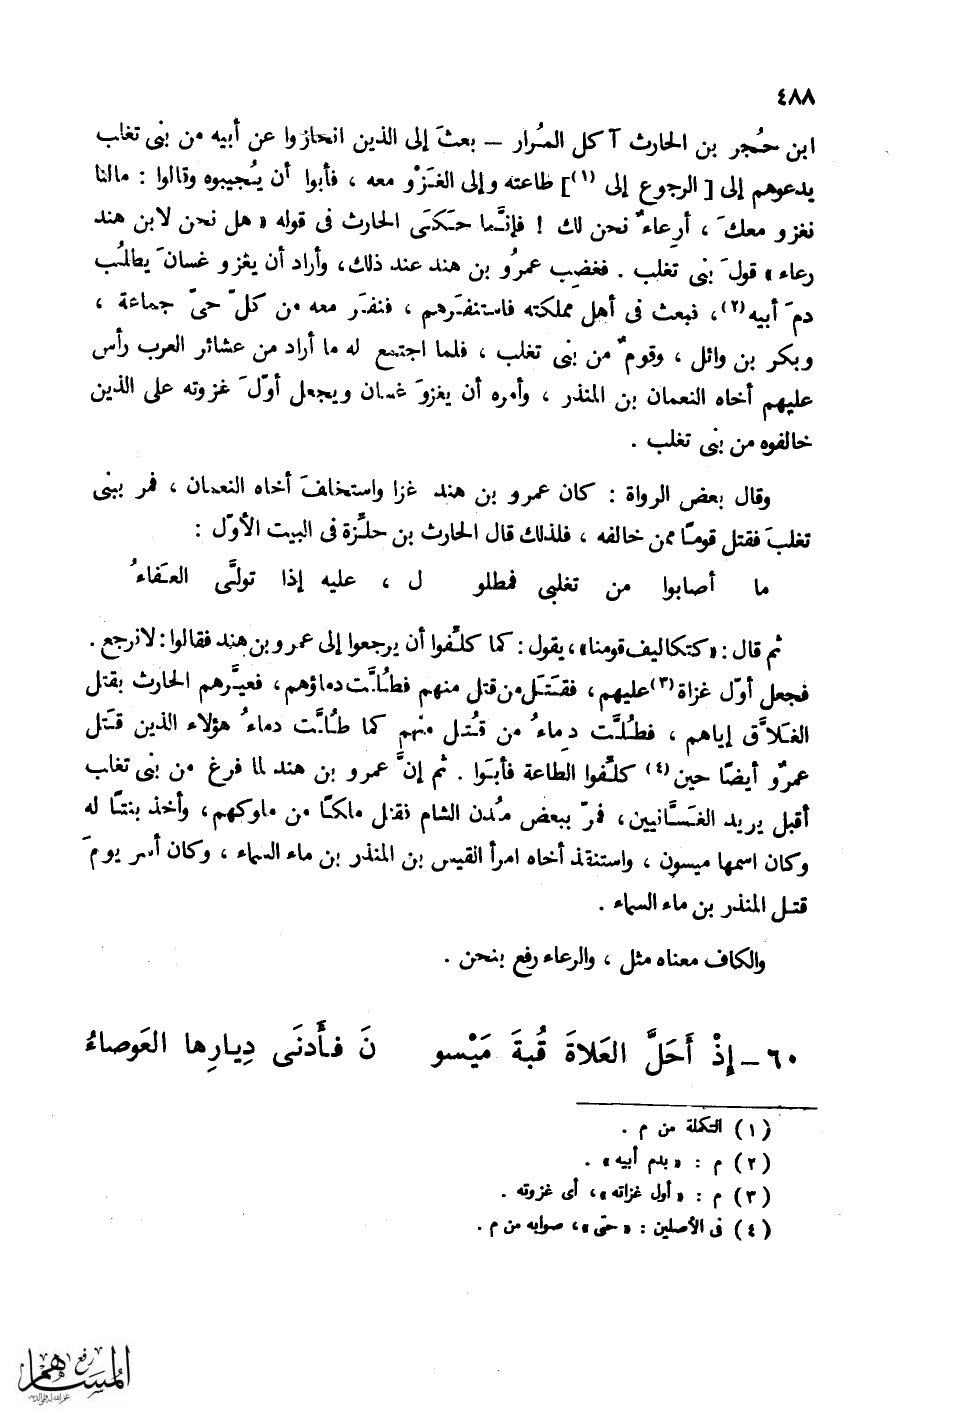 ٤٨٨
ابن حُجر بن الحارث آكل المُرار – بعثَ إلى الذين انحازوا عن أبيه من بنى تغلب
يدعوهم إلى [ الرجوع إلى (١)] طاعته وإلى الغَزْو معه ، فأبوا أن يُجيبوه وقالوا : مالنا
نغزو معكَ ، أرِعاءٌ نحن لك ! فإنَّما حَكَى الحارث فى قوله « هل نحن لابن هند
رعاء » قولَ بنى تغلب . فغضِب عمرُو بن هند عند ذلك، وأراد أن يغزو غسانَ يطالُب
دمَ أبيه (٢)، فبعث فى أهل مملكته فاستنفَرهم ، فنفَر معه من كلّ حىّ جماعة ،
وبكر بن وائل ، وقومٌ من بنى تغلب ، فلما اجتمع له ما أراد من عشائر العرب رأس
عليهم أخاه النعمان بن المنذر ، وأمره أن يغزوَ غسان ويجعل أوّلَ غزوته على الذين
خالفوه من بنى تغلب .
وقال بعض الرواة : كان عمرو بن هند غزا واستخلفَ أخاه النعمان ، فمر ببنى
تغلبَ فقتل قومًا ممن خالفه ، فلذلك قال الحارث بن حلِّزة فى البيت الأوّل :
ما أصابوا من تغلبى فمطلو ل ، عليه إذا تولَّى العَفاءُ
ثم قال : « كتكاليف قومنا »، يقول : كما كلِّفوا أن يرجعوا إلى عمرو بن هند فقالوا : لا نرجع .
فجعل أوّل غزاة (٣) عليهم ، فقَتَل من قتل منهم فطُلَّت دماؤهم ، فعيَّرهم الحارث بقتل
الغَلاَّق إياهم ، فطُلَّت دِماءُ من قُتل منْهم كما طُلَّت دماءُ هؤلاء الذين قتَل
عمرٌو أيضًا حين (٤) كلِّفوا الطاعة فأبَوا . ثم إنَّ عمرو بن هند لما فرغ من بنى تغلب
أقبل يريد الغَسَّانيين، فمرّ ببعض مُدن الشام فقتل ملكًا من ملوكهم، وأخذ بنتًا له
وكان اسمها ميسون ، واستنقذ أخاه امرأ القيس بن المنذر بن ماء السماء ، وكان أسر يومَ
قتل المنذر بن ماء السماء .
والكاف معناه مثل ، والرعاء رفع بنحن .
٦٠ – إِذْ أَحَلَّ العَلاةَ قُبةَ مَيْسو نَ فأَدنَى دِيارِها العَوصاءُ
(١) التكملة من م .
(٢) م : « بدم أبيه » .
(٣) م : « أول غزاته »، أى غزوته .
(٤) فى الأصلين : « حتى »، صوابه من م .
رفع
المساهم